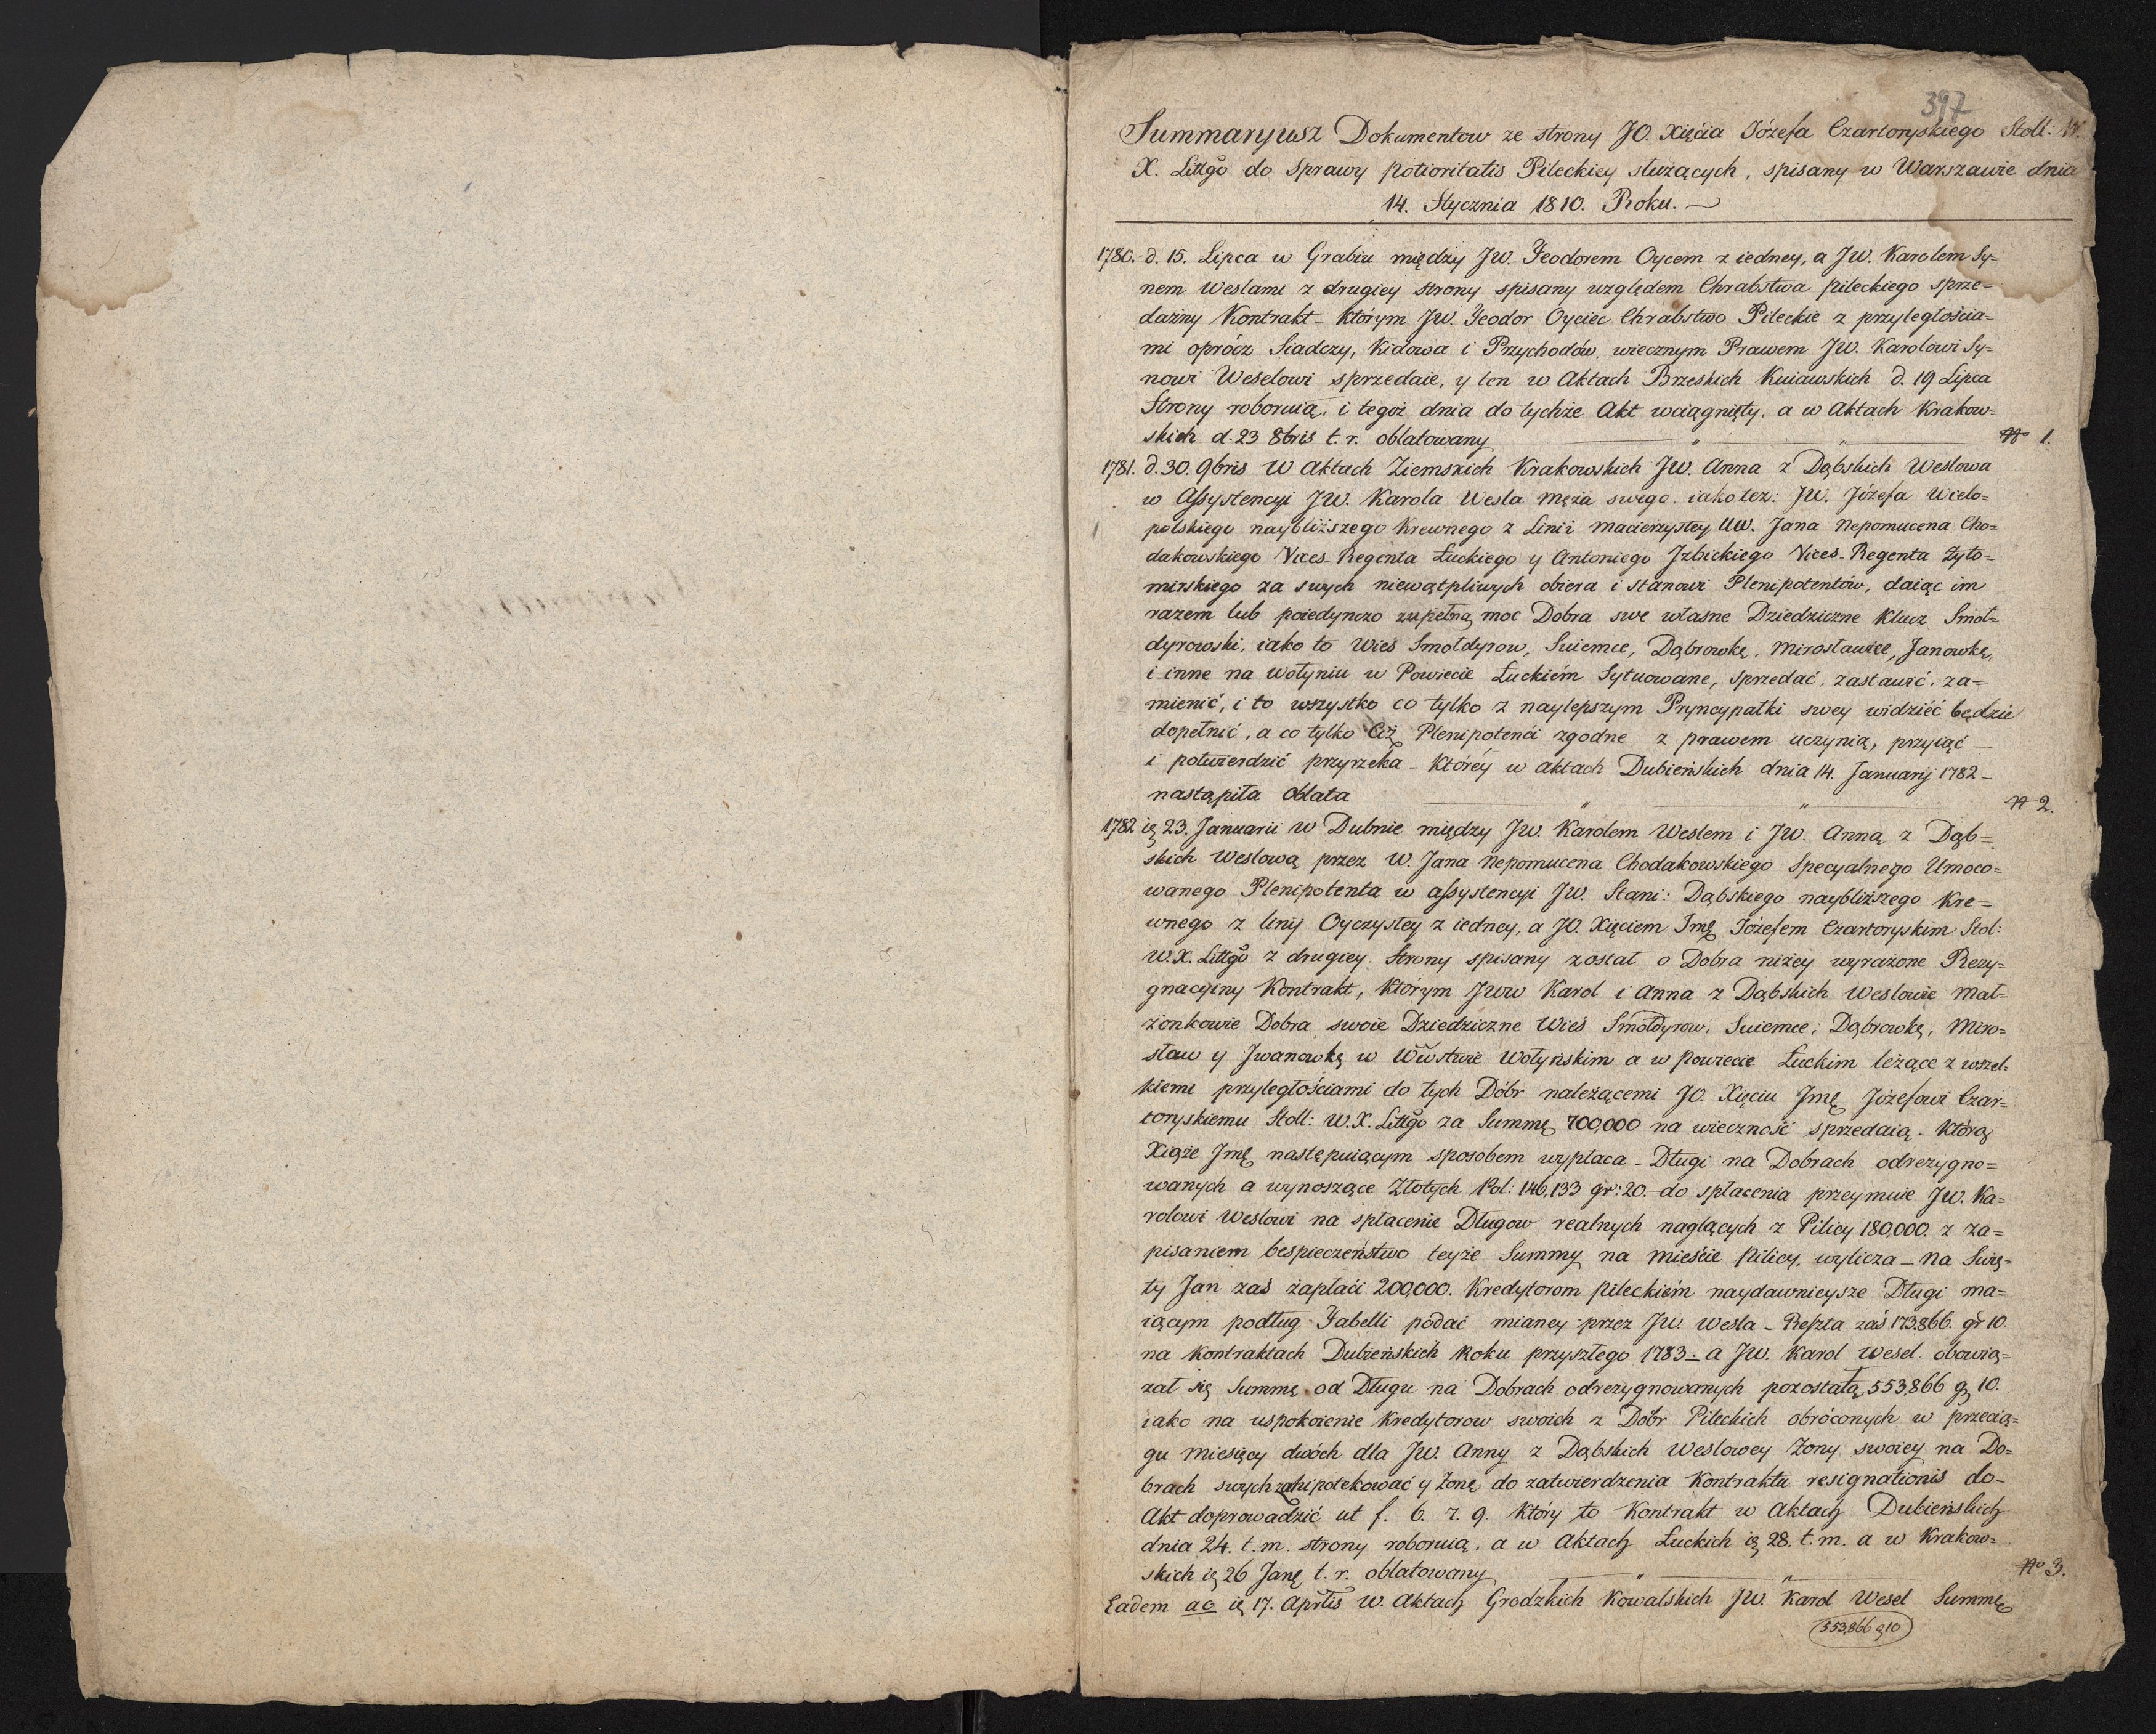 397
Summaryusz Dokumentow ze strony JO. Xięcia Józefa Czartoryskiego Stoll: W.
X. Littgo do Sprawy potioritatis Pileckiey służących, spisany w Warszawie dnia
14. Stycznia 1810. Roku. —
1780. d. 15. Lipca w Grabiu między JW. Teodorem Oycem z iedney, a JW. Karolem Sy=
nem Weslami z drugiey strony spisany względem Chrabstwa pileckiego sprze=
dażny Kontrakt – którym JW. Teodor Oyciec Chrabstwo Pileckie z przyległościa=
mi oprócz Siadczy, Kidowa i Przychodów, wiecznym Prawem JW. Karolowi Sy=
nowi Weselowi sprzedaie, y ten w Aktach Brzeskich Kuiawskich d. 19 Lipca
Strony roboruią, i tegoż dnia do tychże Akt wciągnięty, a w Aktach Krakow=
skich d. 23 8bris t. r. oblatowany No 1.
1781. d. 30. 9bris W Aktach Ziemskich Krakowskich JW. Anna z Dąbskich Weslowa
w Assystencyi JW. Karola Wesla Męża swego, iako tez: JW. Józefa Wielo=
polskiego naybliższego Krewnego z Linii macierzystey UW. Jana Nepomucena Cho=
dakowskiego Vices-Regenta Łuckiego y Antoniego Jzbickiego Vices-Regenta Żyto=
mirskiego za swych niewątpliwych obiera i stanowi Plenipotentów, daiąc im
razem lub poiedynczo zupełną moc Dobra swe własne Dziedziczne Klucz Smoł=
dyrowski, iako to Wieś Smołdyrow, Suiemce, Dąbrowkę, Mirosławice, Janowkę,
i inne na Wołyniu w Powiecie Łuckiém Sytuowane, sprzedać, zastawić, za=
mienić, i to wszystko co tylko z naylepszym Pryncypałki swey widziéć będzie
dopełnić, a co tylko Ciż Plenipotenci zgodne z prawem uczynią, przyiąć —
i potwierdzić przyrzeka – któréy w aktach Dubieńskich dnia 14. Januarij 1782 –
nastąpiła Oblata N 2.
1782 ię 23. Januarii w Dubnie między JW. Karolem Weslem i JW. Anną z Dąb=
skich Weslową przez W. Jana Nepomucena Chodakowskiego Specyalnego Umoco=
wanego Plenipotenta w assystencyi JW. Stani: Dąbskiego naybliższego Kre=
wnego z linij Oyczystey z iedney, a JO. Xięciem Jmę Józefem Czartoryskim Stol:
W. X. Littgo z drugiey Strony spisany został o Dobra niżey wyrażone Rezy=
gnacyiny Kontrakt, którym JWW Karol i Anna z Dąbskich Weslowie Mał=
żonkowie Dobra swoie Dziedziczne Wieś Smołdyrow, Suiemce, Dąbrowkę, Miro=
sław y Jwanowkę w Wwstwie Wołyńskim a w Powiecie Łuckim leżące z wszel=
kiemi przyległościami do tych Dóbr należącemi JO. Xięciu Jmę Józefowi Czar=
toryskiemu Stoll: W. X. Littgo za Summę 700,000 na wieczność sprzedaią – którą
Xiąże Jmę następuiącym sposobem wypłaca – Długi na Dobrach odrezygno=
wanych a wynoszące Złotych Pol: 146,133 gr: 20. – do spłacenia przeymuie JW. Ka=
rolowi Weslowi na spłacenie Długow realnych naglących z Pilicy 180,000. z za=
pisaniem bespieczeństwo teyże Summy na Mieście Pilicy, wylicza – Na Swię=
ty Jan zaś zapłaci 200,000. Kredytorom pileckiém naydawnieysze Długi ma=
iącym podług Tabelli podać mianey przez JW. Wesla – Reszta zaś 173,866. gr 10.
na Kontraktach Dubieńskich Roku przyszłego 1783 – a JW. Karol Wesel obowią=
zał się Summę od Długu na Dobrach odrezygnowanych pozostałą 553,866 g 10.
iako na uspokoienie Kredytorow swoich z Dóbr Pileckich obróconych w przecią=
gu miesięcy dwóch dla JW. Anny z Dąbskich Weslowey Żony swoiey na Do=
brach swych zahipotekować y Żonę do zatwierdzenia Kontraktu resignationis do=
Akt doprowadzić ut f. 6. 7. 9. który to Kontrakt w Aktach Dubieńskich
dnia 24. t. m. strony roboruią, a w Aktach Łuckich ię 28. t. m. a w Krakow=
skich ię 26 Janę t. r. oblatowany No 3.
Eadem ao ię 17. Aprlis w. Aktach Grodzkich Kowalskich JW. Karol Wesel Summę
553,866 g 10